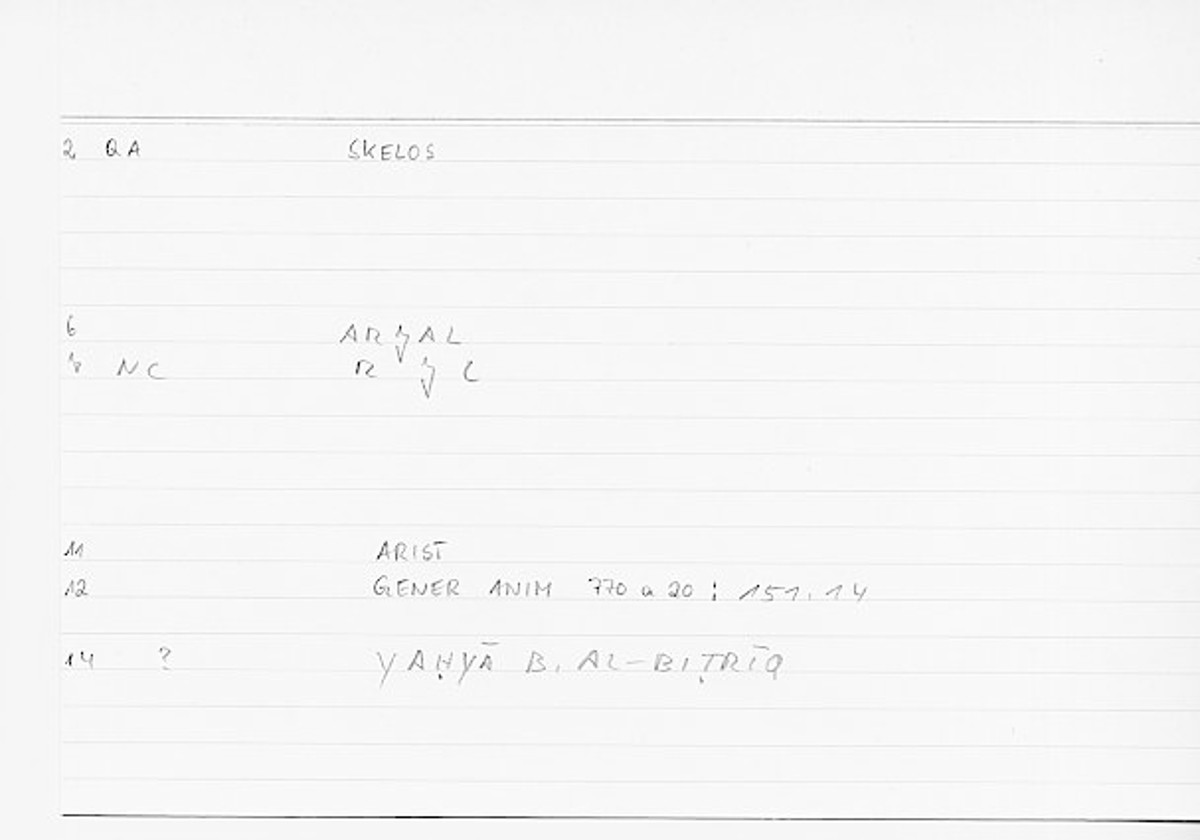 2 QA SKELOS
6
NC R
11 ARIST
12 GENER ANIM 770 a 20 : 151.14
14 ? YAḤYĀ B. AL-BIṬRĪQ